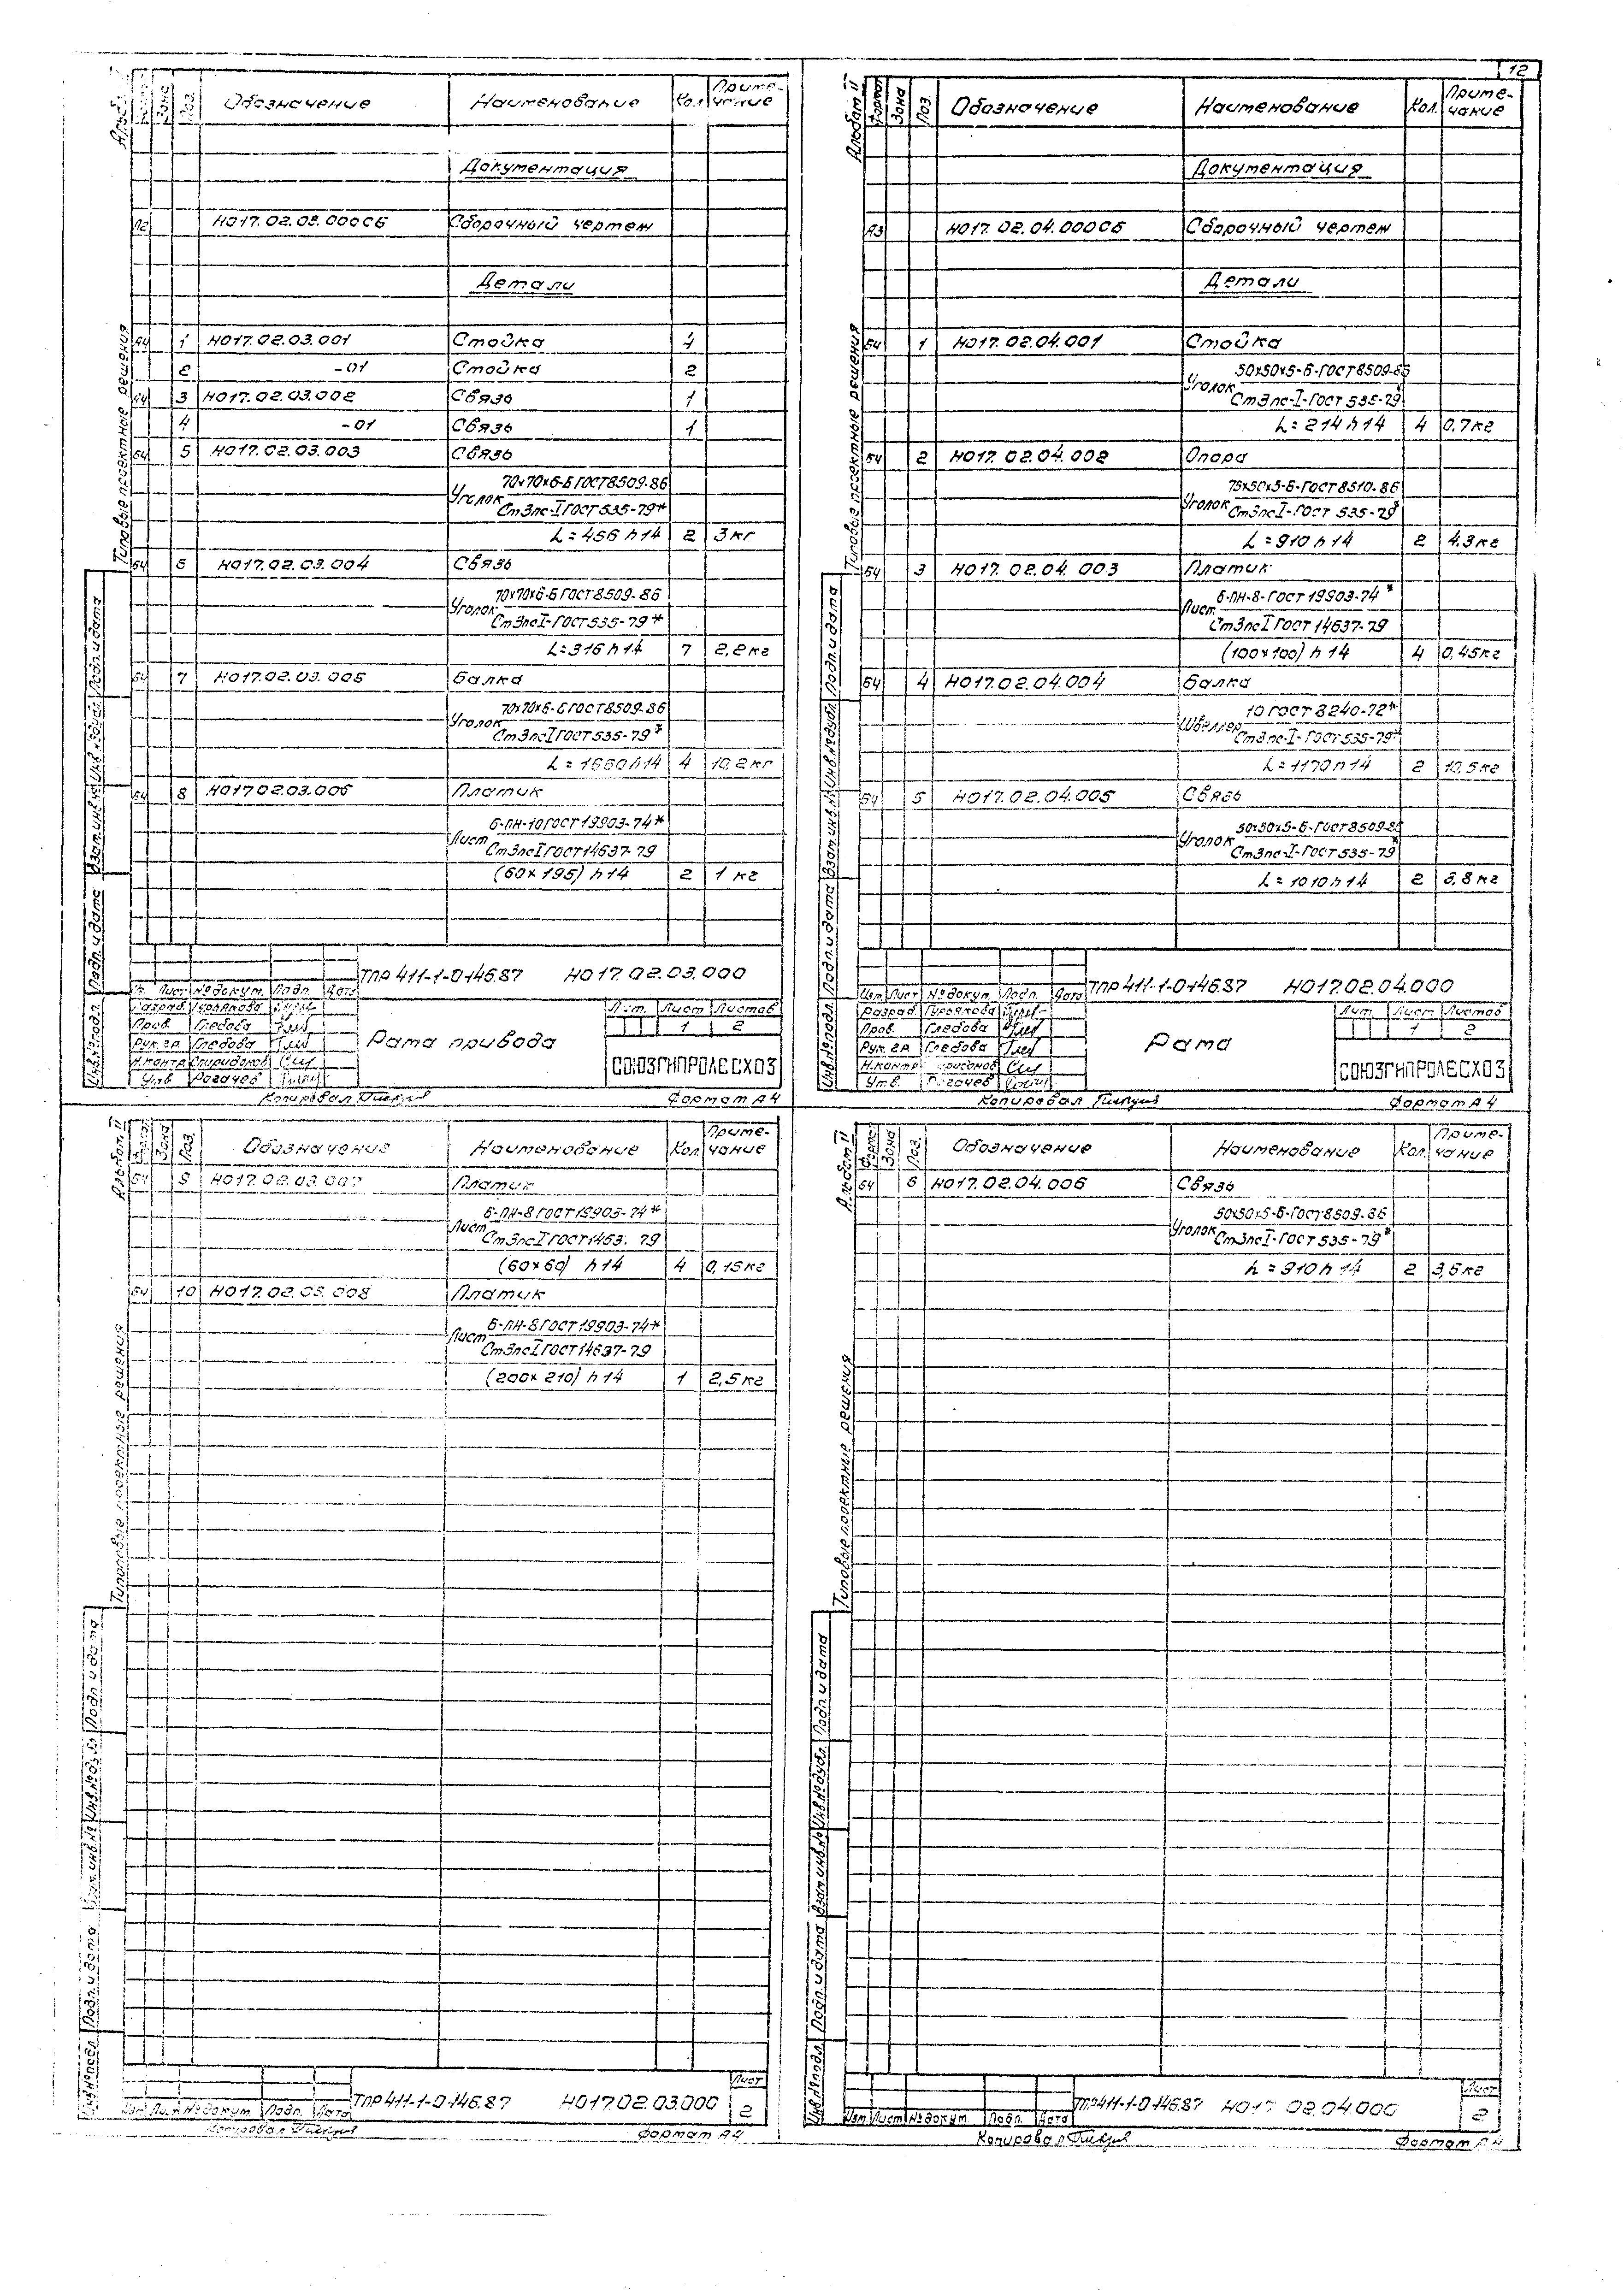 12
Обозначение Наименование Кол. Приме-
чание
Документация
НО17.02.03.000СБ Сборочный чертеж
Детали
БЧ 1 НО17.02.03.001 Стойка 4
2 -01 Стойка 2
БЧ 3 НО17.02.03.002 Связь 1
4 -01 Связь 1
БЧ 5 НО17.02.03.003 Связь
70х70х6-Б ГОСТ 8509-86
Уголок
Ст3псI ГОСТ 535-79*
L=456 h14 2 3 кг
БЧ 6 НО17.02.03.004 Связь
70х70х6-Б ГОСТ 8509-86
Уголок
Ст3псI-ГОСТ 535-79*
L=316 h14 7 2,2 кг
БЧ 7 НО17.02.03.005 Балка
70х70х6-Б ГОСТ 8509-86
Уголок
Ст3псI ГОСТ 535-79*
L=1660 h14 4 10,2 кг
БЧ 8 НО17.02.03.006 Платик
Б-ПН-10 ГОСТ 19903-74*
Лист
Ст3псI ГОСТ 14637-79
(60х195) h14 2 1 кг
Типовые проектные решения
Подп. и дата
Взам. инв. №
Инв. № дубл.
Подп. и дата
Инв. № подл.
ТПР 411-1-0-146.87 НО17.02.03.000
Лист № докум. Подп. Дата
Разраб. Гурьянова
Пров. Глебова
Рук. гр. Глебова
Н.контр. Спиридонов
Утв. Рогачев
Рама привода
Лит. Лист Листов
1 2
СОЮЗГИПРОЛЕСХОЗ
Копировал Формат А4
Альбом II
Формат Зона Поз. Обозначение Наименование Кол. Приме-
чание
Документация
А3 НО17.02.04.000СБ Сборочный чертеж
Детали
БЧ 1 НО17.02.04.001 Стойка
50х50х5-Б-ГОСТ 8509-86
Уголок
Ст3пс-I-ГОСТ 535-79*
L=214 h14 4 0,7 кг
БЧ 2 НО17.02.04.002 Опора
75х50х5-Б-ГОСТ 8510-86
Уголок
Ст3псI-ГОСТ 535-79*
L=910 h14 2 4,3 кг
БЧ 3 НО17.02.04.003 Платик
Б-ПН-8-ГОСТ 19903-74*
Лист
Ст3псI ГОСТ 14637-79
(100х100) h14 4 0,45 кг
БЧ 4 НО17.02.04.004 Балка
10 ГОСТ 8240-72*
Швеллер
Ст3пс-I-ГОСТ 535-79*
L=1170 h14 2 10,5 кг
БЧ 5 НО17.02.04.005 Связь
50х50х5-Б-ГОСТ 8509-86
Уголок
Ст3пс-I-ГОСТ 535-79*
L=1010 h14 2 3,8 кг
Типовые проектные решения
Подп. и дата
Инв. № дубл.
Взам. инв. №
Подп. и дата
Инв. № подл.
ТПР 411-1-0-146.87 НО17.02.04.000
Изм Лист № докум. Подп. Дата
Разраб. Гурьянова
Пров. Глебова
Рук. гр. Глебова
Н.контр.
Утв. Рогачев
Рама
Лит. Лист Листов
1 2
СОЮЗГИПРОЛЕСХОЗ
Копировал Формат А4
Альбом II
Зона Поз. Обозначение Наименование Кол. Приме-
чание
БЧ 9 НО17.02.03.007 Платик
Б-ПН-8 ГОСТ 19903-74*
Лист
Ст3псI ГОСТ
(60х60) h14 4 0,15 кг
БЧ 10 НО17.02.03.008 Платик
Б-ПН-8 ГОСТ 19903-74*
Лист
Ст3псI ГОСТ 14637-79
(200х210) h14 1 2,5 кг
Типовые проектные решения
Подп. и дата
Инв. № дубл.
Взам. инв. №
Подп. и дата
Инв. № подл.
ТПР 411-1-0-146.87 НО17.02.03.000
Лист
2
Изм № докум. Подп. Дата
Копировал Формат А4
Альбом II
Формат Зона Поз. Обозначение Наименование Кол. Приме-
чание
БЧ 6 НО17.02.04.006 Связь
50х50х5-Б-ГОСТ 8509-86
Уголок
Ст3псI-ГОСТ 535-79*
L=910 h14 2 3,6 кг
Типовые проектные решения
Подп. и дата
Инв. № дубл.
Взам. инв. №
Подп. и дата
Инв. № подл.
ТПР 411-1-0-146.87 НО17.02.04.000
Лист
2
Изм Лист № докум Подп. Дата
Копировал Формат А4